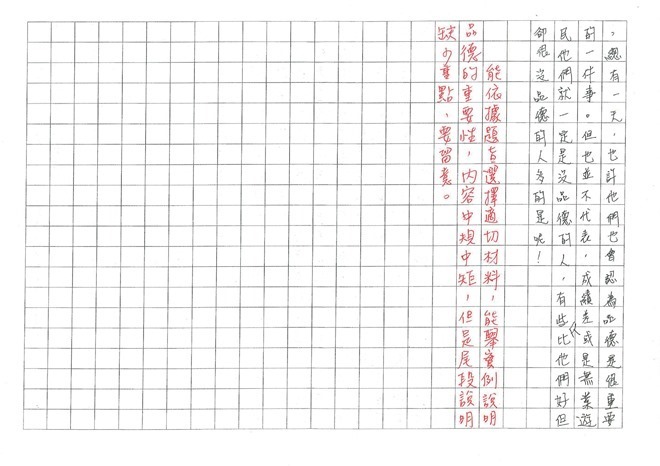 ，總有一天，也許他們也會認為品德是很重要
的一件事。但也並不代表，成績差或是無業遊
民他們就一定是沒品德的人，有些人比他們好但
卻很沒品德的人多的是呢！
能依據題旨選擇適切材料，能舉實例說明
品德的重要性，內容中規中矩，但是尾段說明
缺少重點，要留意。